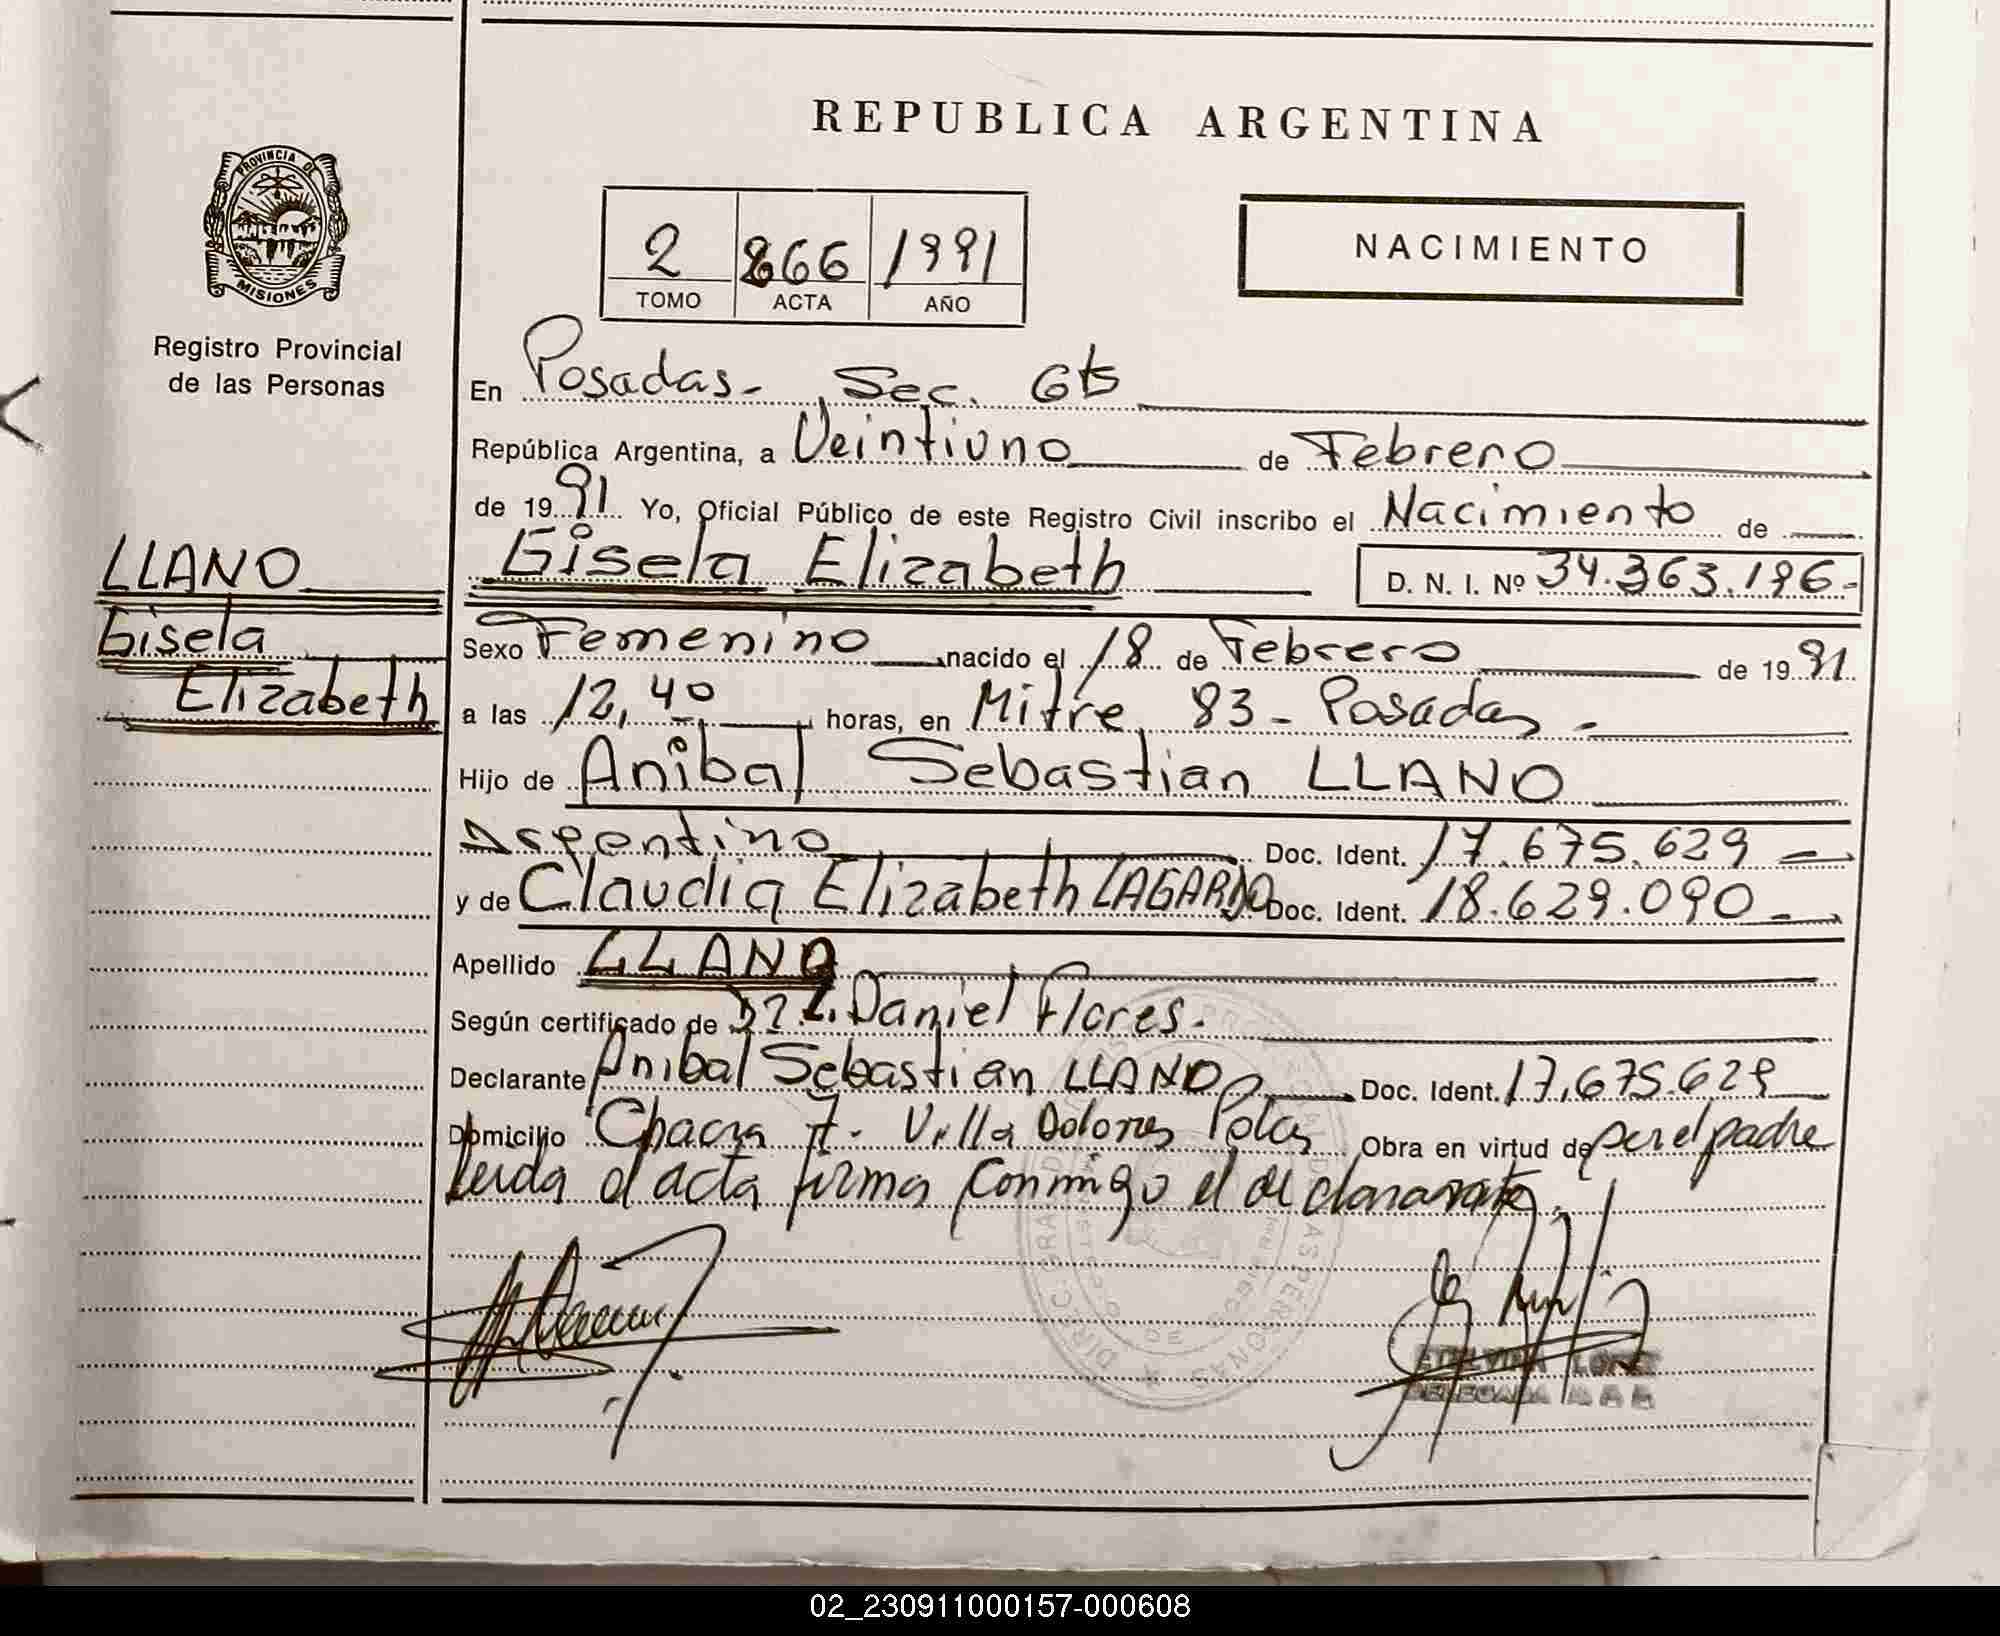 REPUBLICA ARGENTINA
PROVINCIA DE
MISIONES
Registro Provincial
de las Personas
2 266 1991
TOMO ACTA AÑO
NACIMIENTO
En Posadas - Sec. 6ta
República Argentina, a Veintiuno de Febrero
de 1991 Yo, Oficial Público de este Registro Civil inscribo el Nacimiento de
LLANO
Gisela
Elizabeth
Gisela Elizabeth D. N. I. Nº 34.363.196-
Sexo Femenino nacido el 18 de Febrero de 1991
a las 12,40 horas, en Mitre 83 - Posadas -
Hijo de Anibal Sebastian LLANO
Argentino Doc. Ident. 17.675.629 -
y de Claudia Elizabeth LAGARDO Doc. Ident. 18.629.090 -
Apellido LLANO
Según certificado de Daniel Flores.
Declarante Anibal Sebastian LLANO Doc. Ident. 17.675.629
Domicilio Chacra Villa Dolores Pdas Obra en virtud de ser el padre
Leida el acta firma conmigo el declarante.
LOPEZ
DELEGADA
02_230911000157-000608